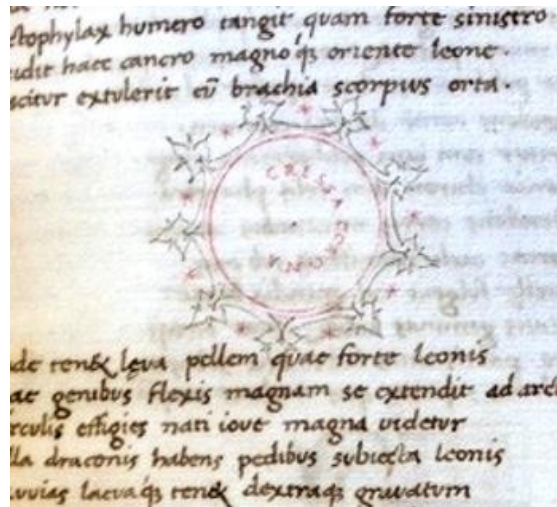 ctophylax humero tangit quam forte sinistro
idit haec cancro magnoq; oriente leone.
scitur extulerit cũ brachia scorpius orta.
CRESSAE CORONA
de ten& lęva pellem quae forte leonis
ae genibus flexis magnam se extendit ad arc
rculis effigies nati iove magna videtur
lla draconis habens pedibus subiecta leonis
uvias laevaq; ten& dextraq; gravatum